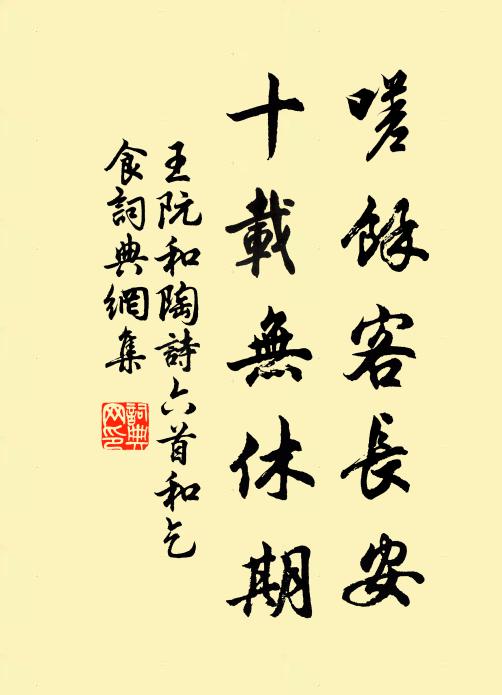 嗟餘客長安
十載無休期
王阮和陶詩六首和乞
食詞典網集
詞典
网印